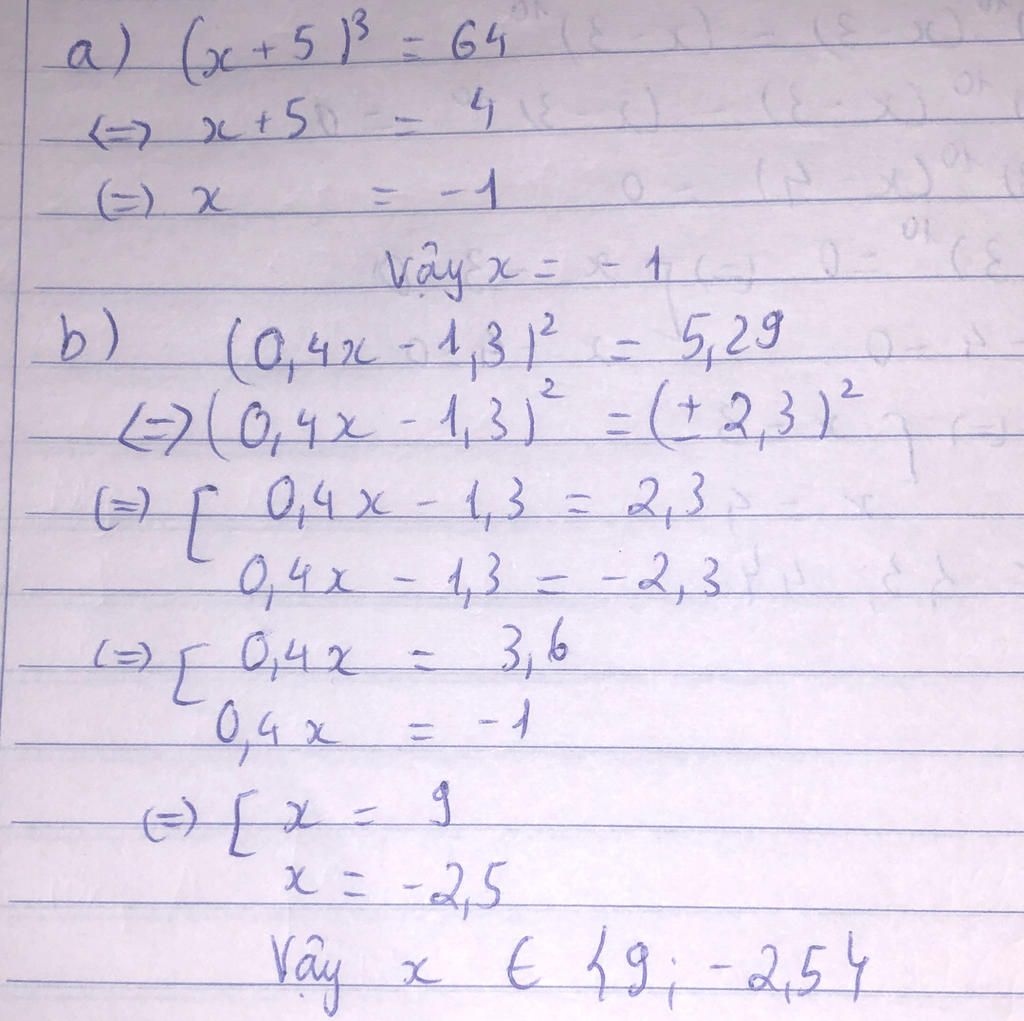 a) (x + 5)³ = 64
<=> x + 5 = 4
(=) x = -1
Vậy x = -1
b) (0,4x - 1,3)² = 5,29
<=> (0,4x - 1,3)² = (± 2,3)²
(=) [ 0,4x - 1,3 = 2,3
0,4x - 1,3 = -2,3
(=) [ 0,4x = 3,6
0,4x = -1
(=) [ x = 9
x = -2,5
Vậy x ∈ {9; -2,5}